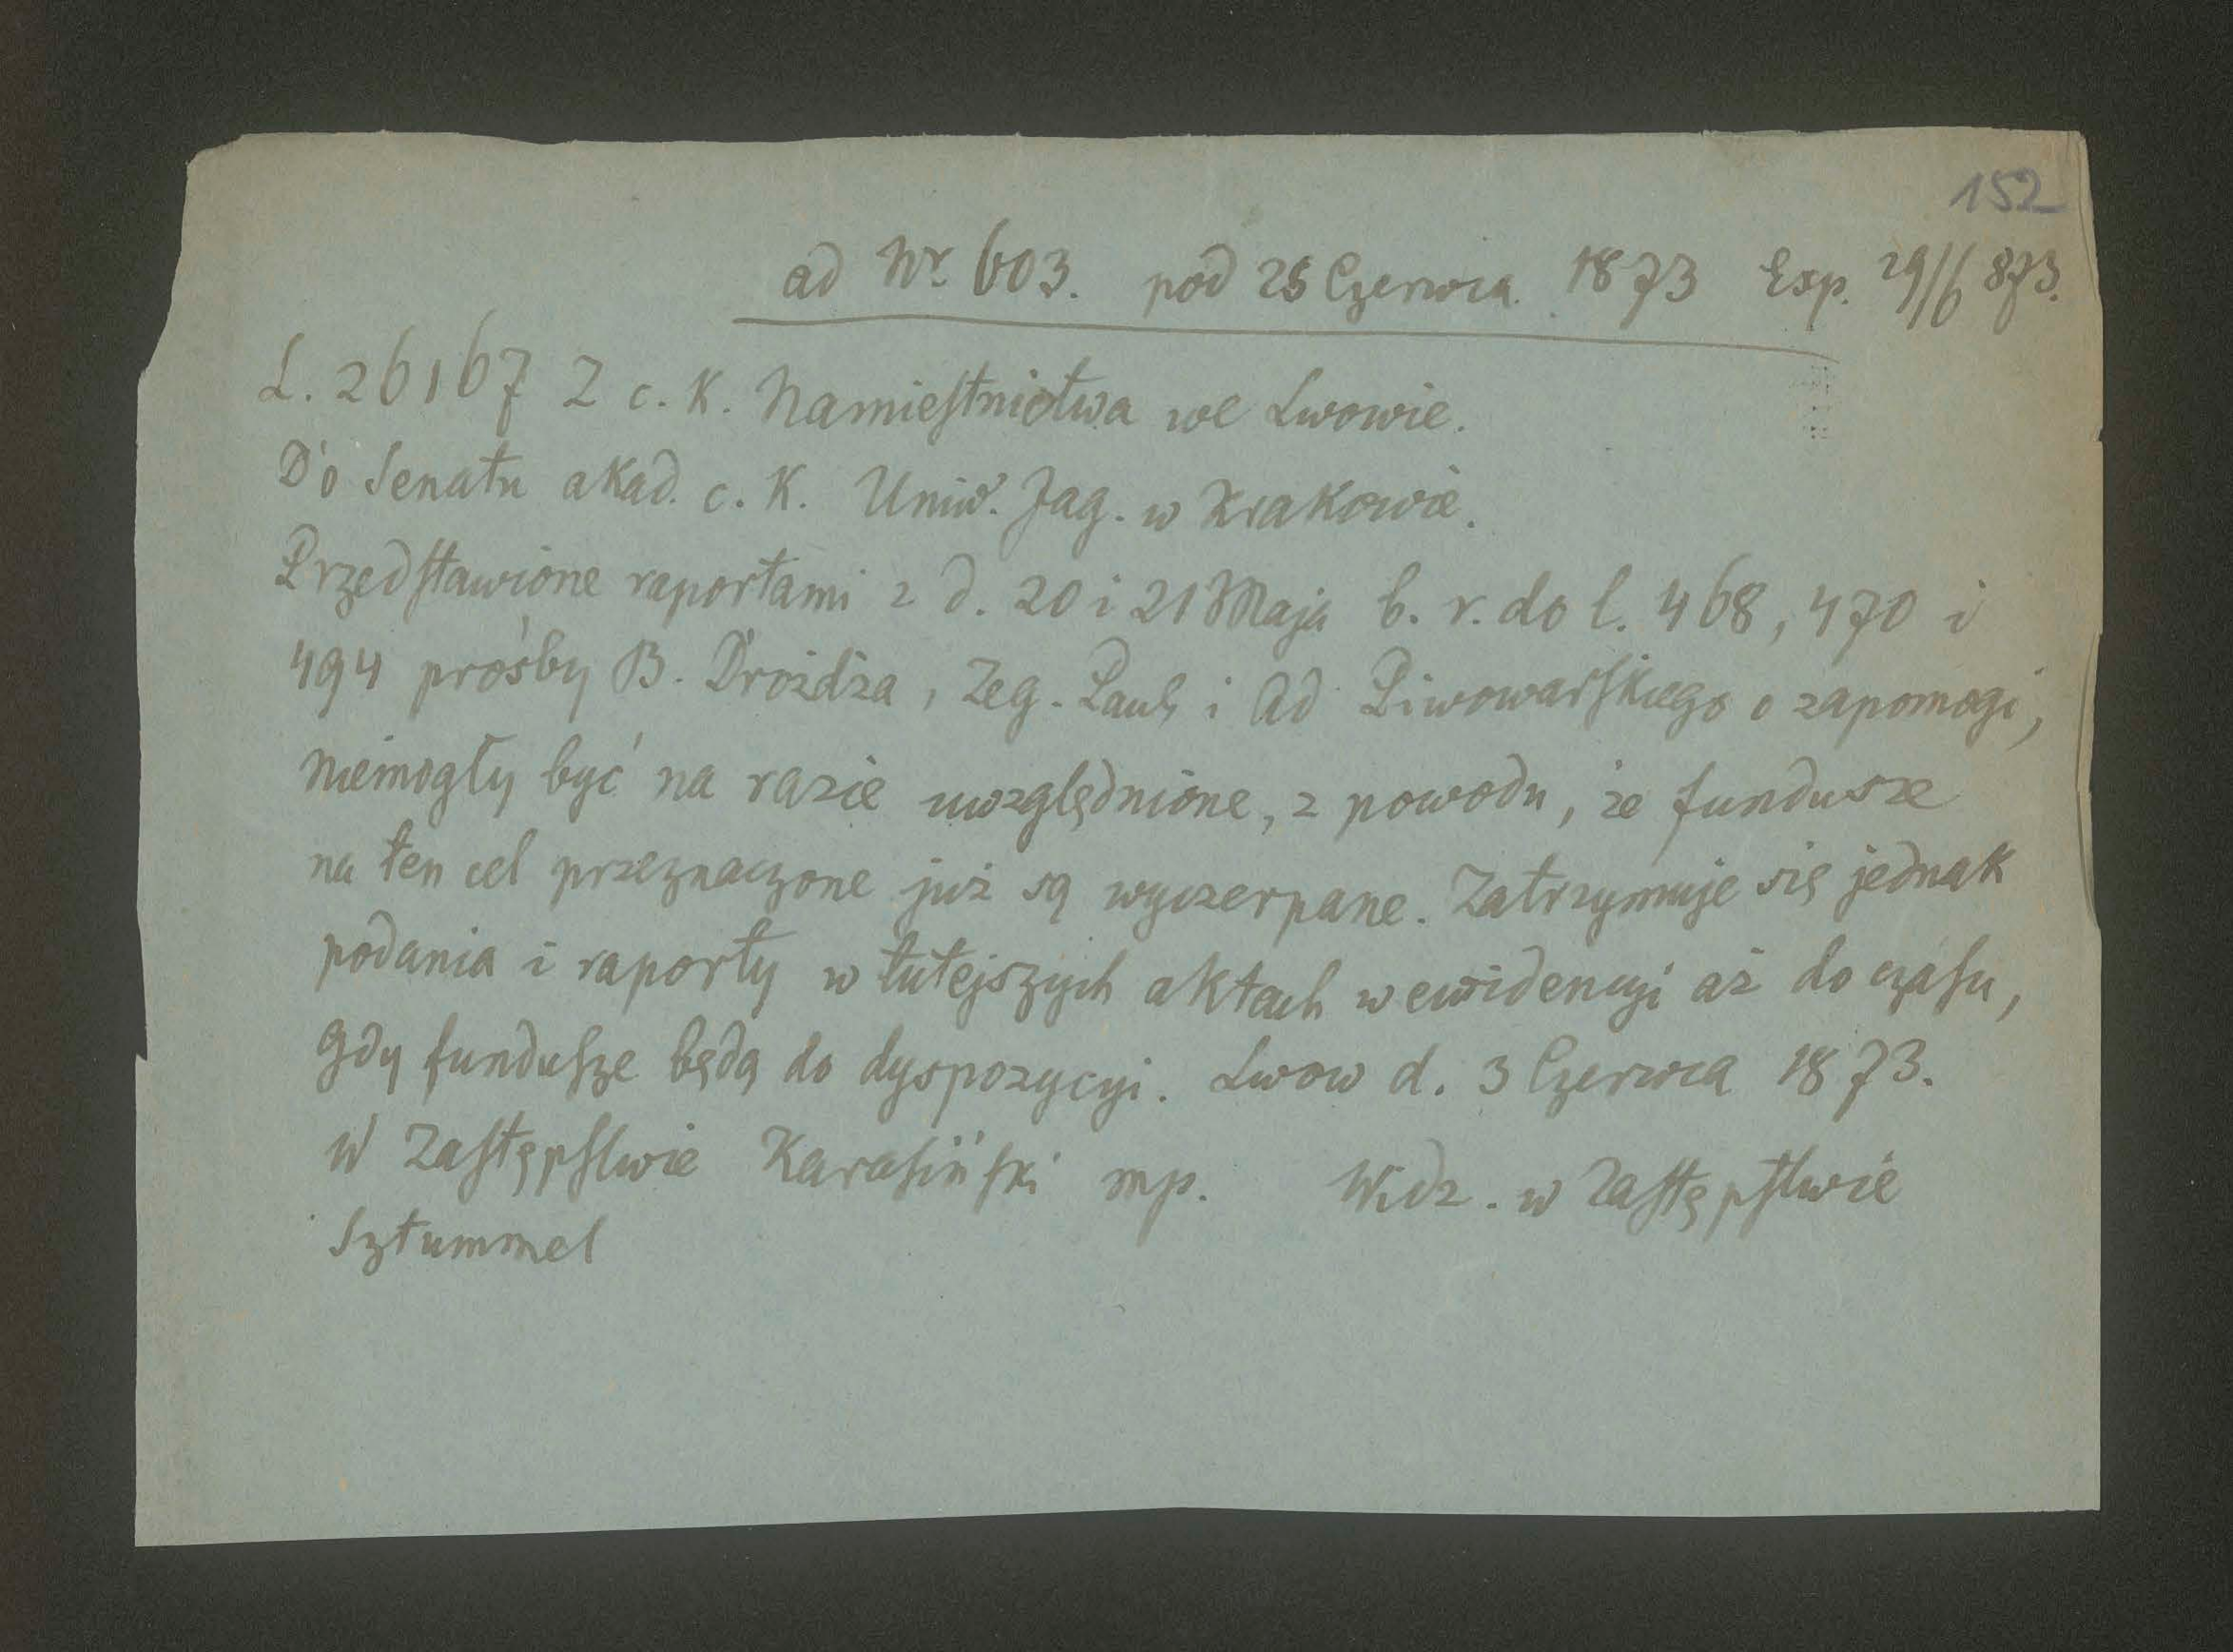 152
ad Nr. 603. pod 25 Czerwca 1873 Exp. 29/6 873.
L. 26167 Z c. K. Namiestnictwa we Lwowie.
Do Senatu akad. c. K. Uniw. Jag. w Krakowie.
Przedstawione raportami z d. 20 i 21 Maja b. r. do l. 468, 470 i
494 prośby B. Drozdza, Zeg. Pauli i Ad Piwowarskiego o zapomogi,
niemogły być na razie uwzględnione, z powodu, że fundusze
na ten cel przeznaczone już są wyczerpane. Zatrzymuje się jednak
podania i raporty w tutejszych aktach w ewidencyi aż do czasu,
gdy fundusze będą do dyspozycyi. Lwow d. 3 Czerwca 1873.
W Zastępstwie Karasiński mp. Widz. w Zastępstwie
Sztummel